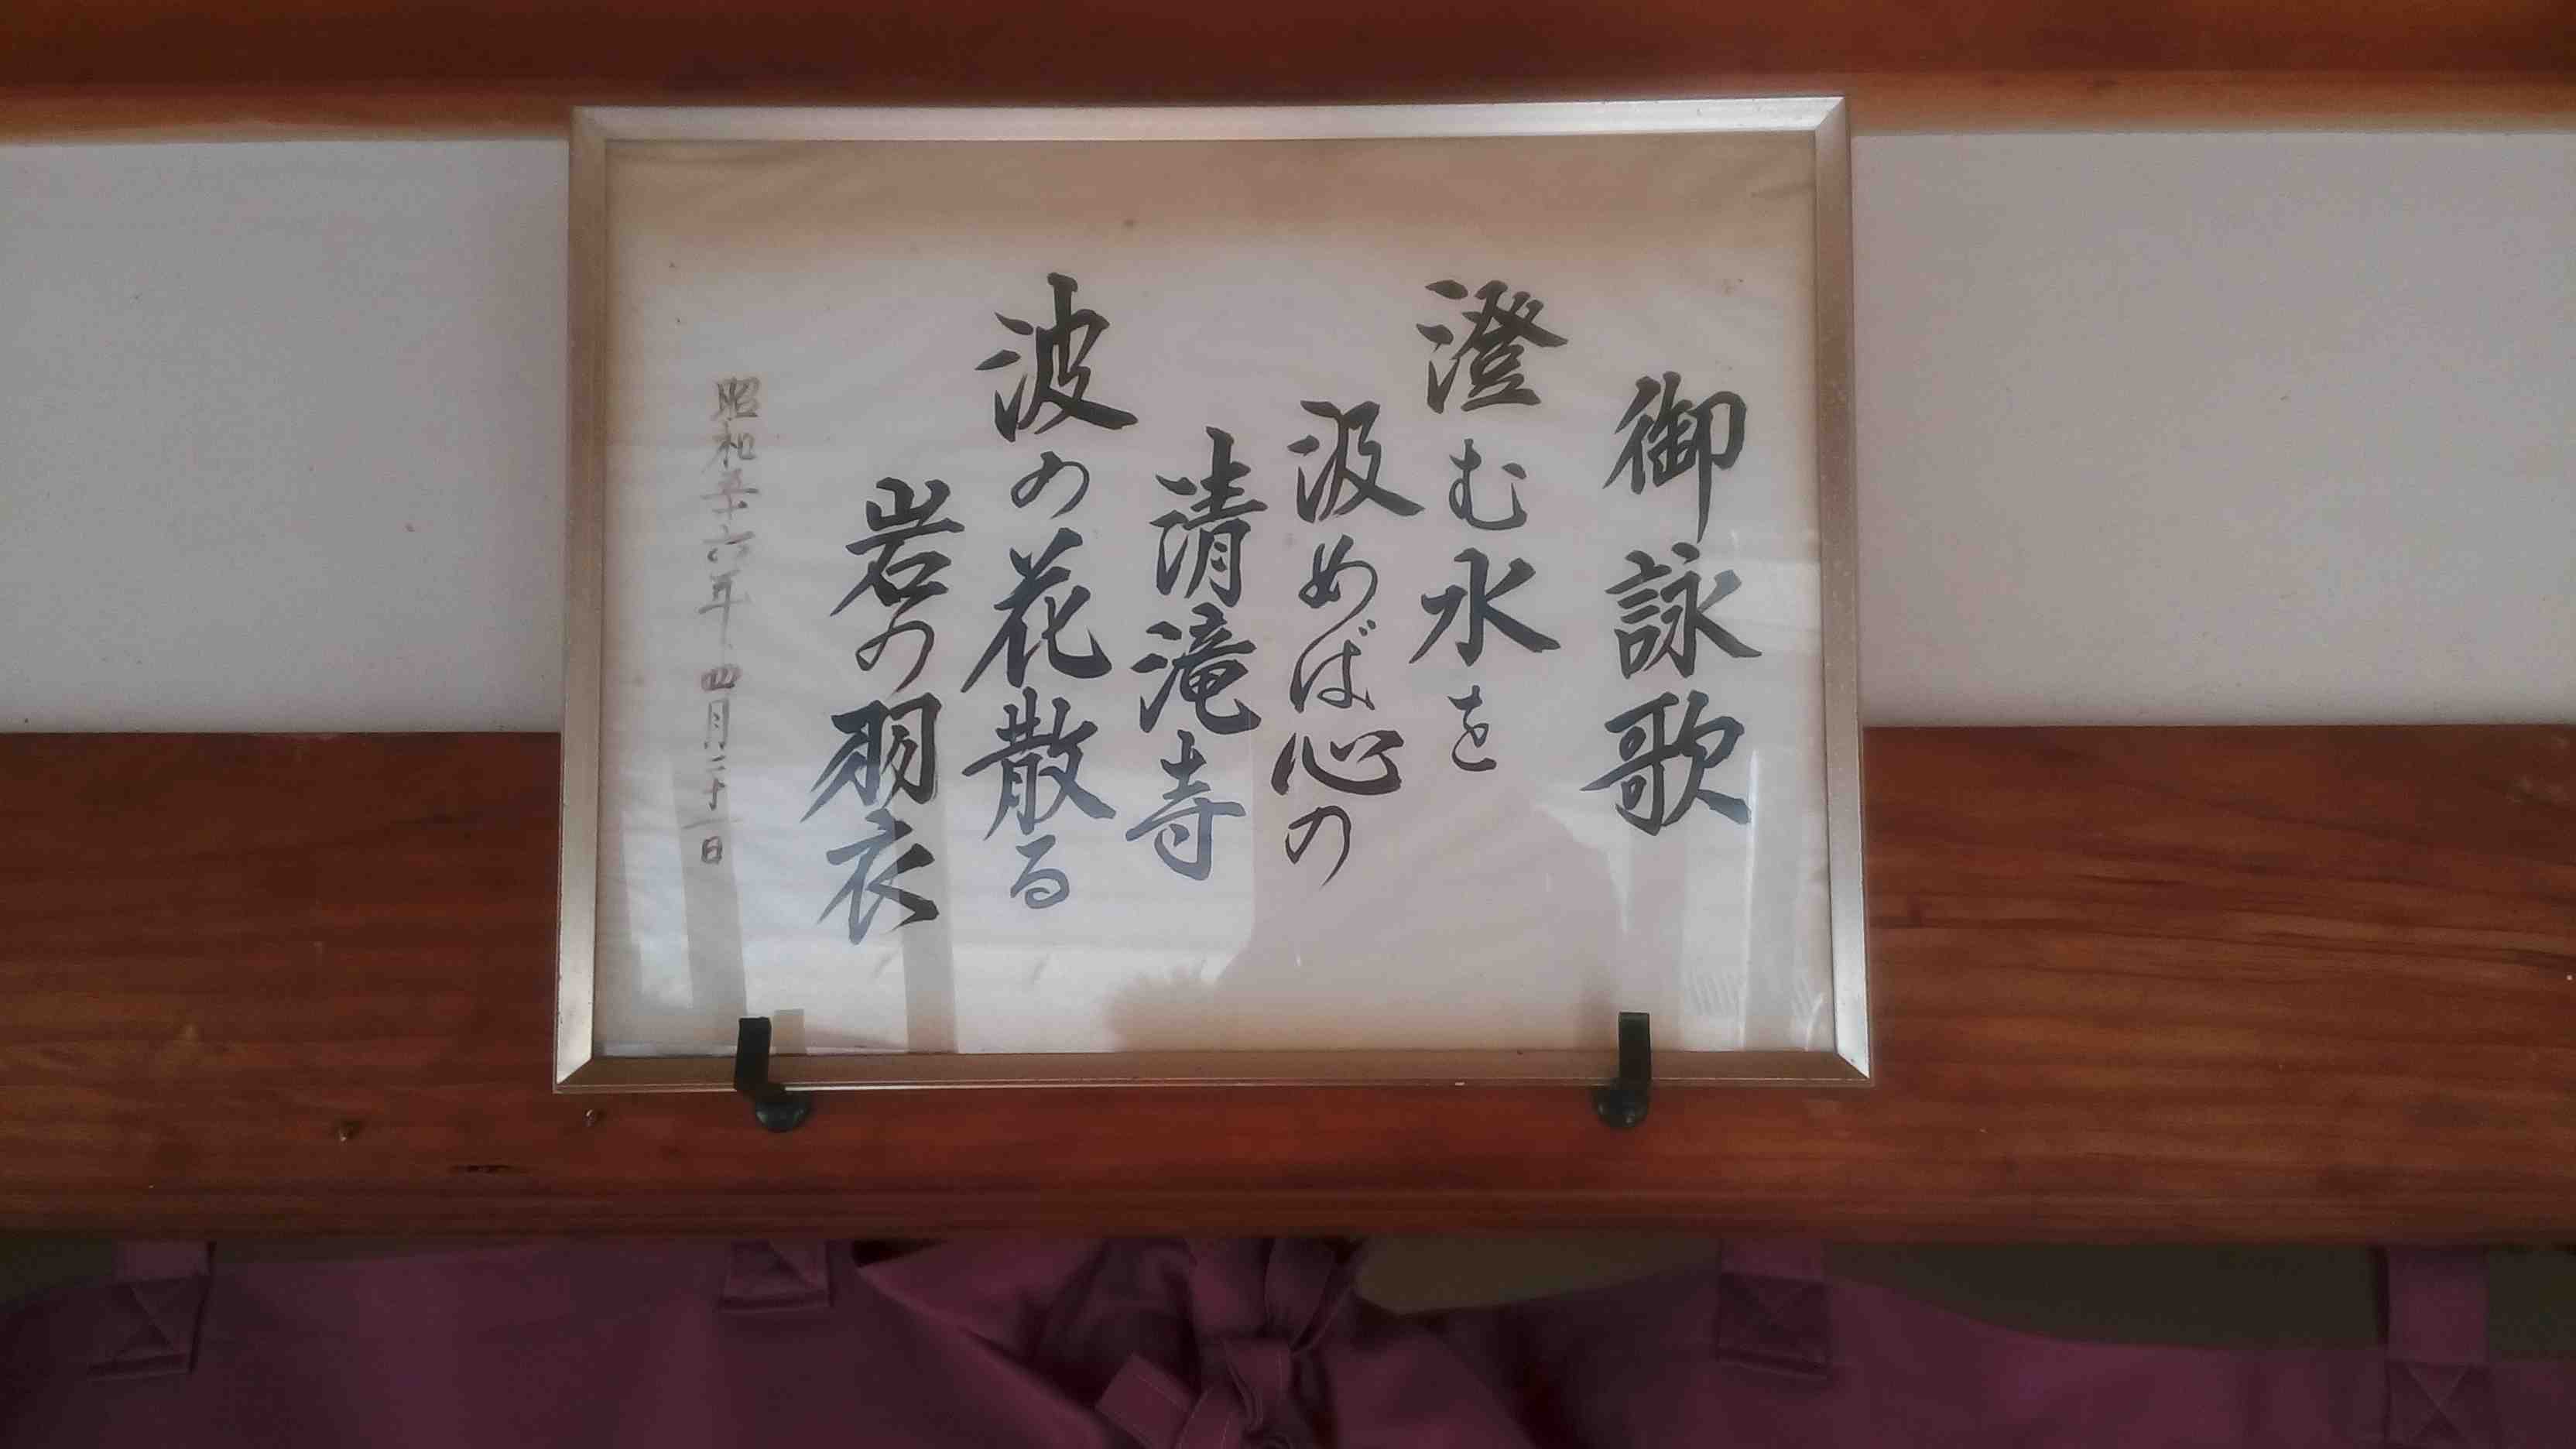 御詠歌
澄む水を
汲めば心の
清滝寺
波の花散る
岩の羽衣
昭和五十六年、四月二十一日